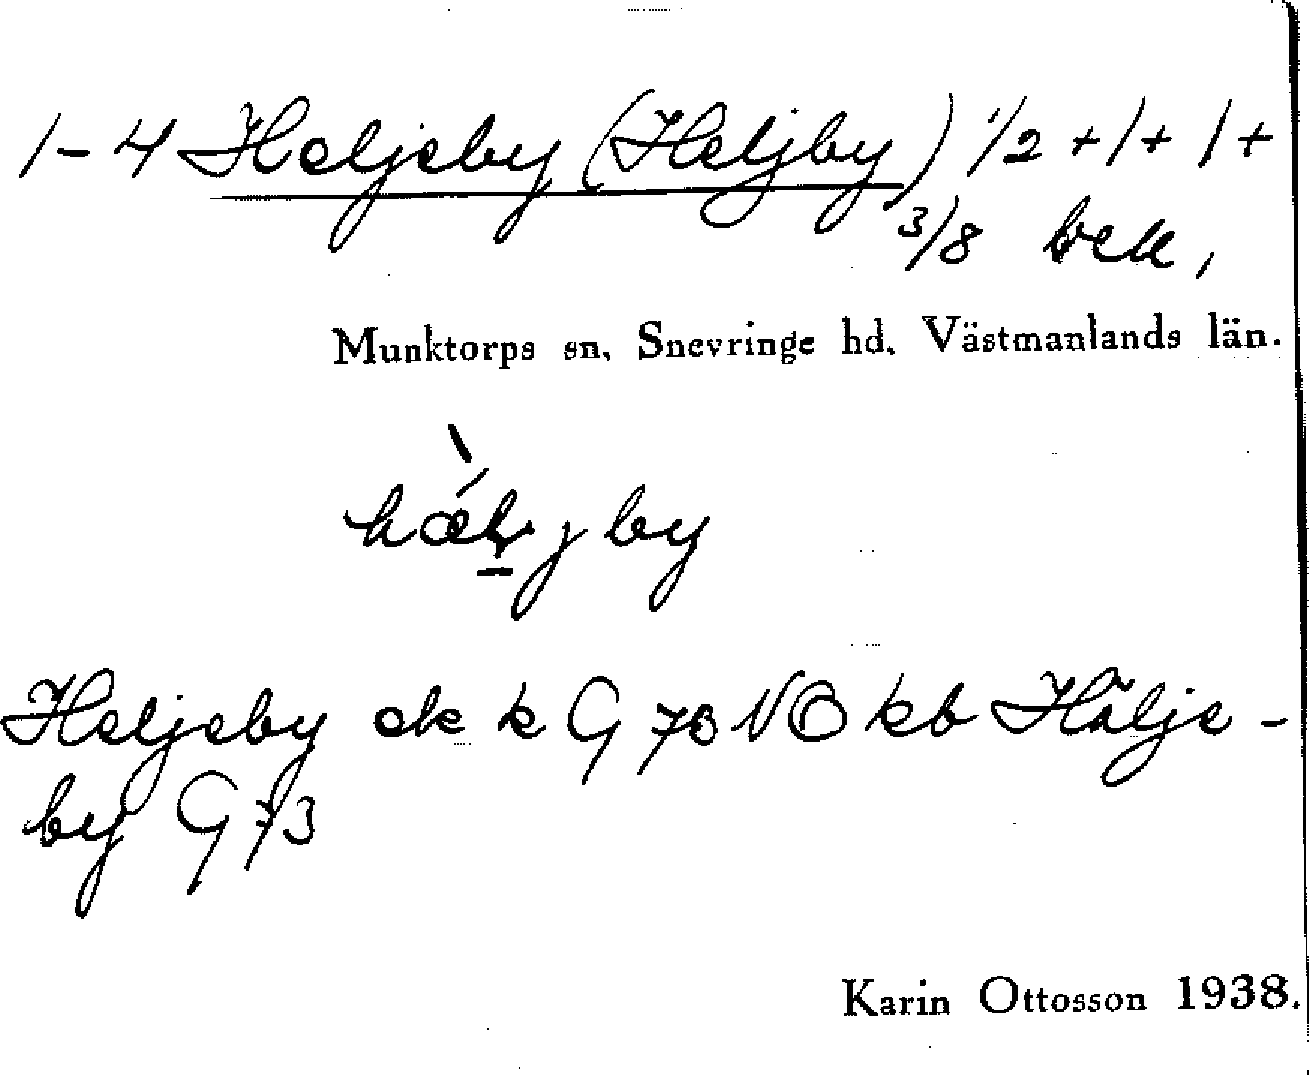 1-4 Heljeby (Heljby) 1/2 + 1 + 1 +
3/8
Munktorps sn. Snevringe hd. Västmanlands län.
Heljeby ek k G 70 NO kb Hälje-
by G 73
Karin Ottosson 1938.